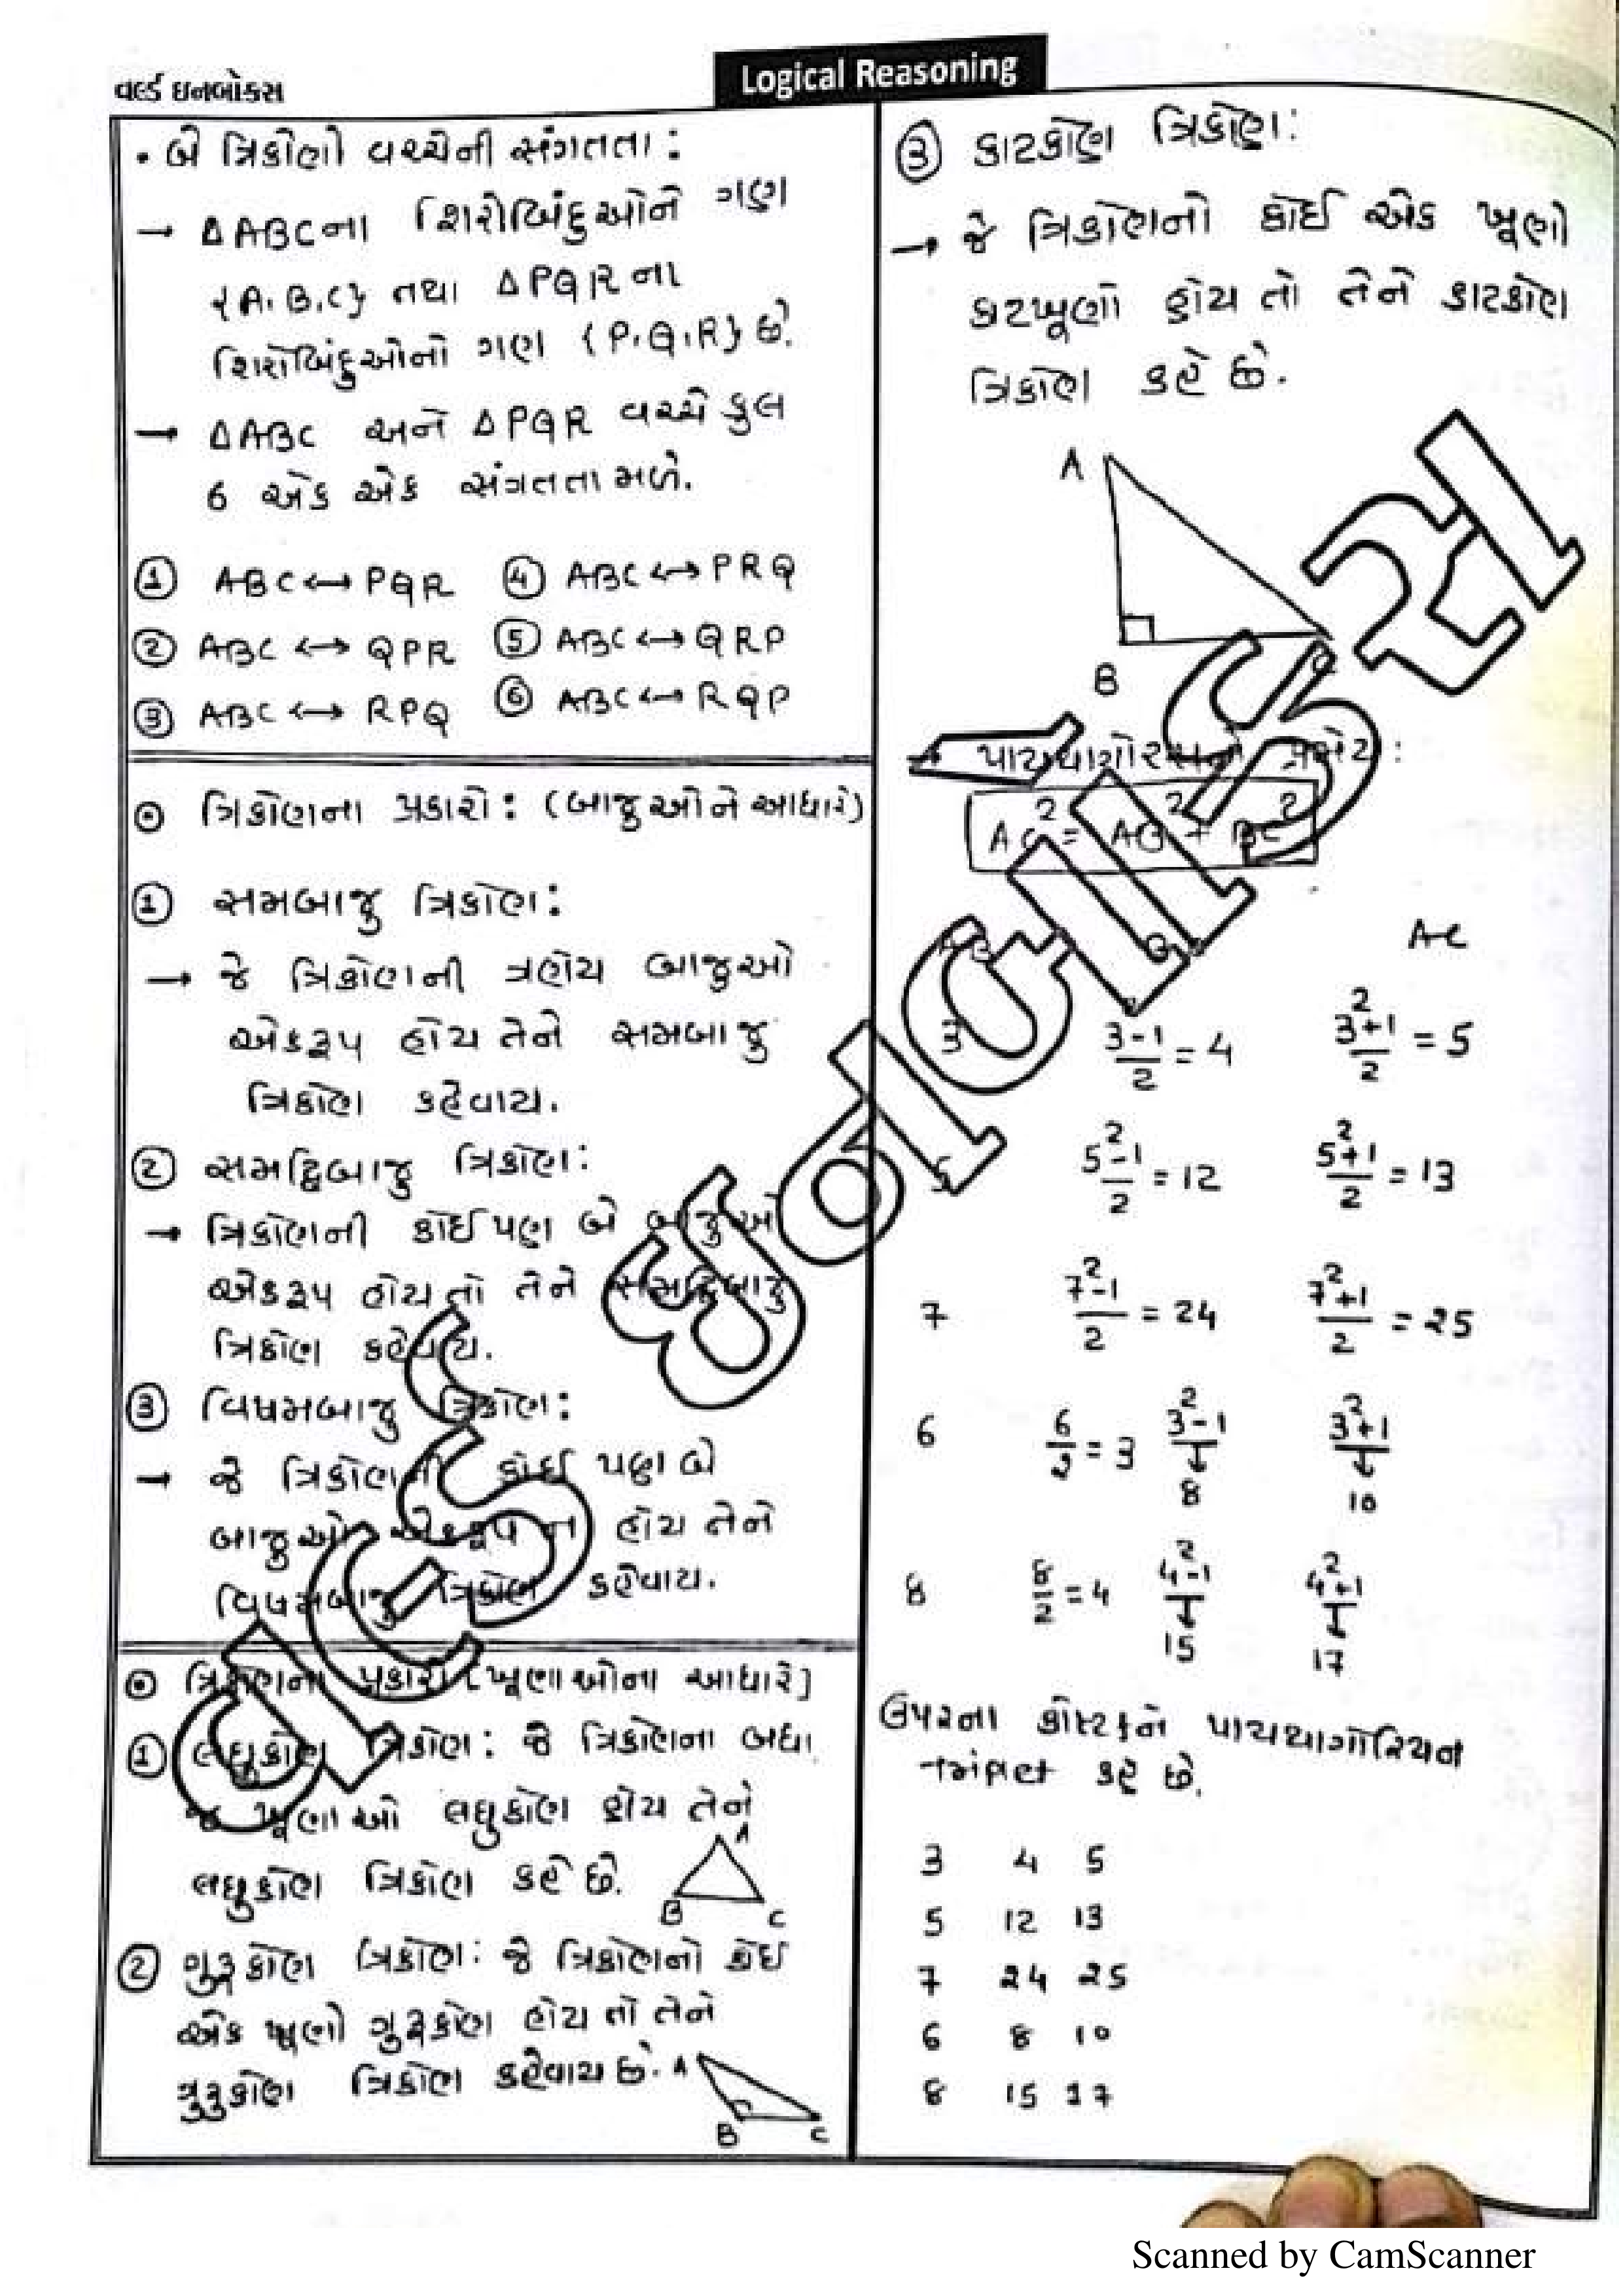 વર્લ્ડ ઇનબોક્સ
Logical Reasoning
• બે ત્રિકોણો વચ્ચેની સંગતતા :
→ ΔABCના શિરોબિંદુઓને ગણ
{A, B, C} તથા ΔPQR ના
શિરોબિંદુઓનો ગણ {P, Q, R} છે.
→ ΔABC અને ΔPQR વચ્ચે કુલ
6 એક એક સંગતતા મળે.
① ABC ↔ PQR ④ ABC ↔ PRQ
② ABC ↔ QPR ⑤ ABC ↔ QRP
③ ABC ↔ RPQ ⑥ ABC ↔ RQP
⊙ ત્રિકોણના પ્રકારો : (બાજુઓને આધારે)
① સમબાજુ ત્રિકોણ :
→ જે ત્રિકોણની ત્રણેય બાજુઓ
એકરૂપ હોય તેને સમબાજુ
ત્રિકોણ કહેવાય.
② સમદ્વિબાજુ ત્રિકોણ :
→ ત્રિકોણની કોઈપણ બે બાજુઓ
એકરૂપ હોય તો તેને સમદ્વિબાજુ
ત્રિકોણ કહેવાય.
③ વિષમબાજુ ત્રિકોણ :
→ જે ત્રિકોણની કોઈ પણ બે
બાજુઓ એકરૂપ ન હોય તેને
વિષમબાજુ ત્રિકોણ કહેવાય.
⊙ ત્રિકોણના પ્રકારો (ખૂણાઓના આધારે)
① લઘુકોણ ત્રિકોણ : જે ત્રિકોણના બધા
જ ખૂણાઓ લઘુકોણ હોય તેને
લઘુકોણ ત્રિકોણ કહે છે.
A
B C
② ગુરૂકોણ ત્રિકોણ : જે ત્રિકોણનો કોઈ
એક ખૂણો ગુરૂકોણ હોય તો તેને
ગુરુકોણ ત્રિકોણ કહેવાય છે.
A
B C
③ કાટકોણ ત્રિકોણ :
→ જે ત્રિકોણનો કોઈ એક ખૂણો
કાટખૂણો હોય તો તેને કાટકોણ
ત્રિકોણ કહે છે.
A
B C
→ પાયથાગોરસનો પ્રમેય :
AC² = AB² + BC²
AB BC AC
3 3²-1/2 = 4 3²+1/2 = 5
5 5²-1/2 = 12 5²+1/2 = 13
7 7²-1/2 = 24 7²+1/2 = 25
6 6/2 = 3 3²-1 ↓ 8 3²+1 ↓ 10
8 8/2 = 4 4²-1 ↓ 15 4²+1 ↓ 17
ઉપરના કોષ્ટકને પાયથાગોરિયન
કહે છે.
3 4 5
5 12 13
7 24 25
6 8 10
8 15 17
Scanned by CamScanner